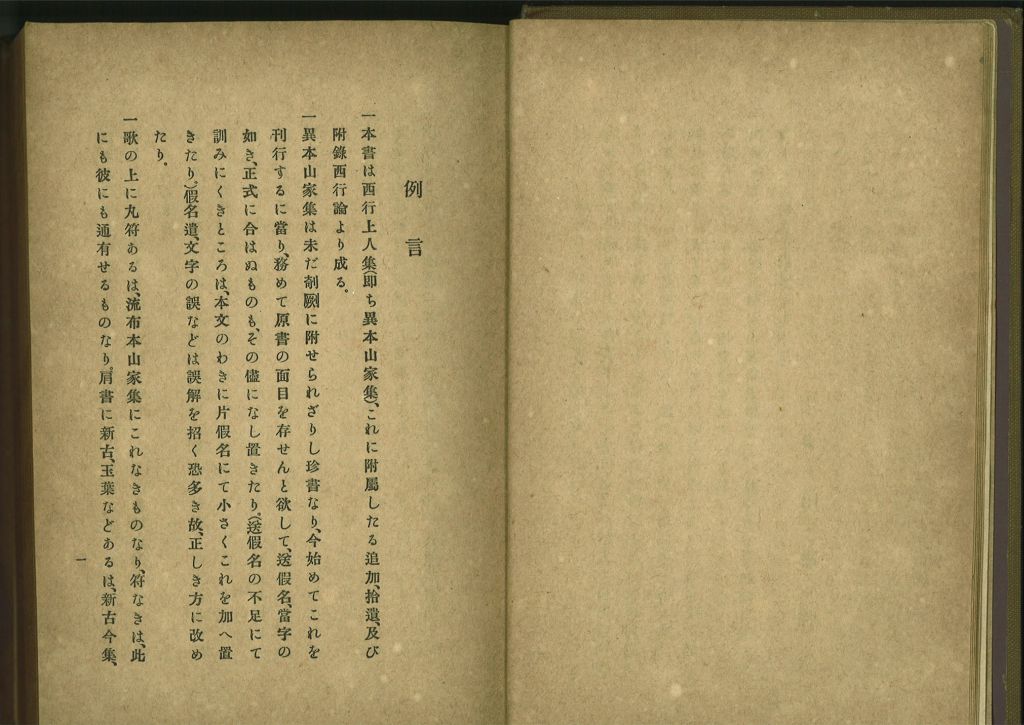 例言
一本書は西行上人集(即ち異本山家集)、これに附屬したる追加、拾遺、及び
附錄西行論より成る。
一異本山家集は未だ剞劂に附せられざりし珍書なり、今始めてこれを
刊行するに當り、務めて原書の面目を存せんと欲して、送假名、當字の
如き、正式に合はぬものも、その儘になし置きたり。(送假名の不足にて
訓みにくきところは、本文のわきに片假名にて小さくこれを加へ置
きたり。)假名遣、文字の誤などは誤解を招く恐多き故、正しき方に改め
たり。
一歌の上に丸符あるは、流布本山家集にこれなきものなり、符なきは、此
にも彼にも通有せるものなり。肩書に新古、玉葉などあるは、新古今集、
一